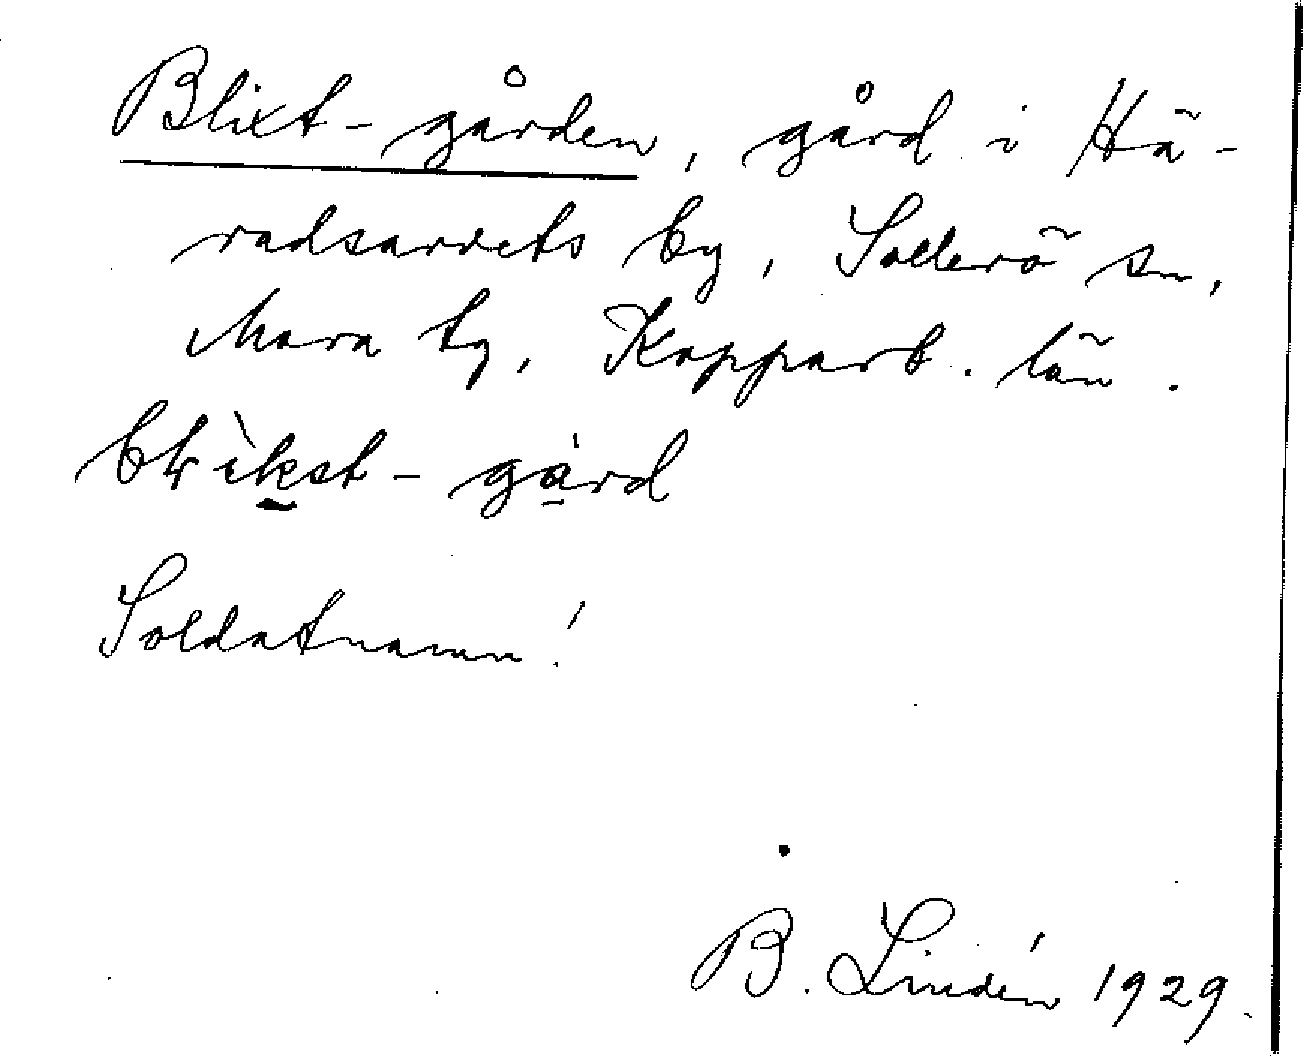 Blixt-gården, gård i Hä-
radsarvets by, Sollerö sn,
Mora tg, Kopparb. län.
blìkst-gá̱rd
Soldatnamn!
B. Lindén 1929.